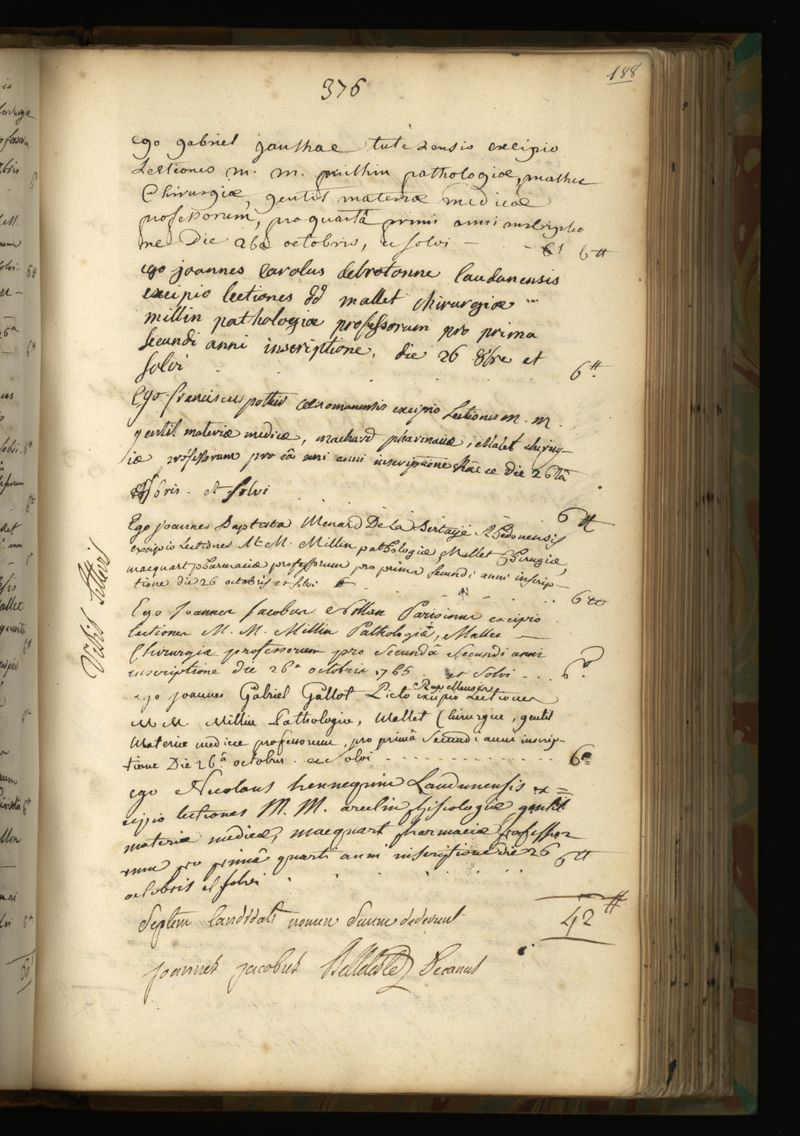 188
376
ego gabriel gauthae tutelensis excipio
Lectiones m. m. millin pathologiæ, mallet
Chirurgiæ, gentil materiæ medicæ
professorum, pro quartâ primi anni inscriptio
ne Die 26a octobris, et solvi — 6tt
ego joannes carolus debrotonne laudunensis
excipio lectiones dd mallet chirurgiæ
millin pathologiæ professorum pro prima
secundi anni inscriptione, die 26 8bre et
solvi . . . 6tt
Ego franciscus pothier cænomanensis excipio Lectiones m. m.
gentil materiæ medicæ, macquard pharmaciæ, Malet chirur-
giæ professorum pro 1a anni inscriptione hac ce die 26tâ
8bris. et solvi . . . 6tt
Ego joannes Baptista Menard De La Bertaije Rhedonensis
excipio Lectiones M. M. Millin pathologiæ, Mallet Chirugiæ,
macquart pharmaciæ professorum pro prima secundi anni inscrip-
tione die 26 octobris et solvi . . . 6tt
Ego Joannes Jacobus Nollin Parisinus excipio
lectiones M. M. Millin Pathologiæ, Mallet —
Chirurgiæ professorum pro Secundâ Secundi anni
inscriptione die 26a octobris 1765 et solvi . . . 6tt
ego joannes Gabriel Gallot Picto Rupellensis excipio Lectiones
M M. Millin Pathologiæ, Mallet Chirurgiæ, gentil
Materiæ medicæ professorum, pro primâ Secundi anni inscrip-
tione Die 26a octobris. et Solvi . . . 6tt
ego Nicolaus hennequin Laudunensis ex=
cipio lectiones M. M. arcelin phisiologiæ gentil
materiæ medicæ, macquart pharmaciæ professor
rum pro primâ quarti anni inscriptione die 26
octobris et solvi . . . 6tt
Septem Candidati nomen Suum dederunt 42tt
joannes jacobus Belleteste Decanus